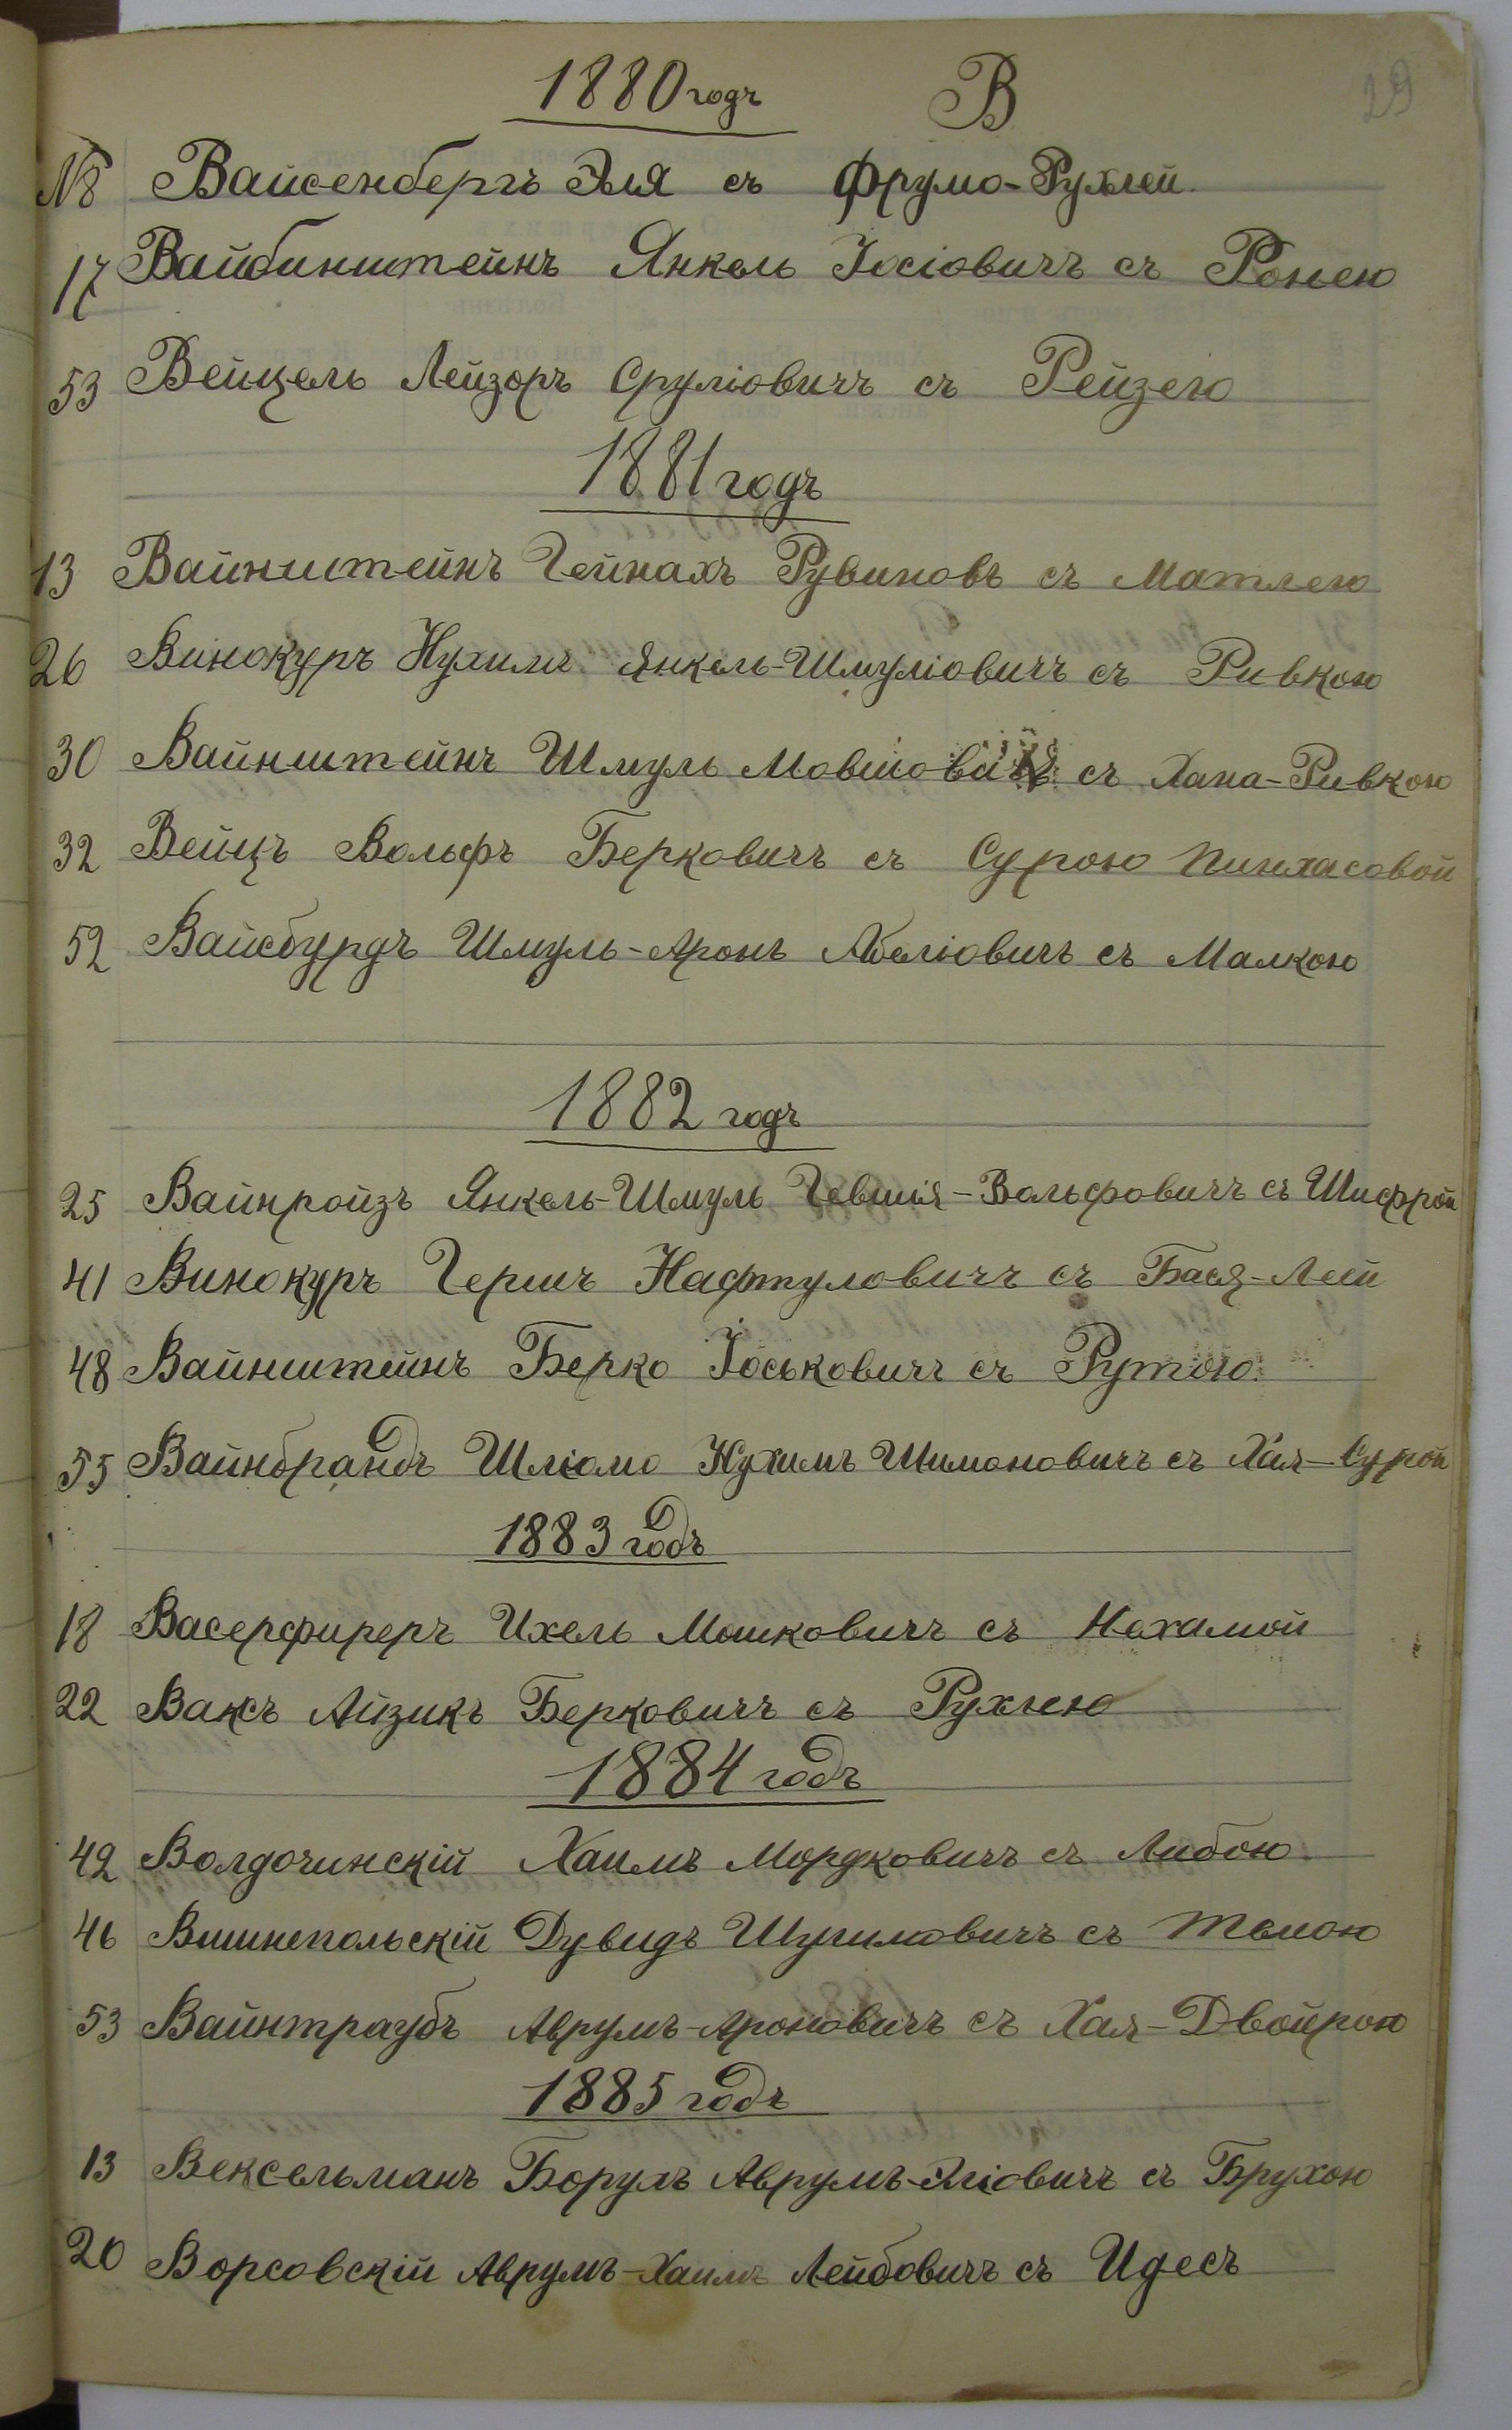 1880 годъ В 29
№8 Вайсенбергъ Эля съ Фрумо-Рухлей
17 Вайбинштейнъ Янкель Іосіовичъ съ Ронею
53 Вейцель Лейзоръ Сруліовичъ съ Рейзею
1881 годъ
13 Вайнштейнъ Гейнахъ Рувиновъ съ Матлею
26 Винокуръ Нухимъ Янкель-Шмуліовичъ съ Ривкою
30 Вайнштейнъ Шмуль Мовшовичъ съ Хана-Ривкою
32 Вейцъ Вольфъ Берковичъ съ Сурою Пинхасовой
52 Вайсбурдъ Шмуль-Аронъ Абеліовичъ съ Малкою
1882 годъ
25 Вайнройзъ Янкель-Шмуль Гевшія-Вольфовичъ съ Шифрой
41 Винокуръ Гершъ Нафтуловичъ съ Бася-Леей
48 Вайнштейнъ Берко Іоськовичъ съ Рутою
55 Вайнбрандъ Шліомо Нухимъ Шимоновичъ съ Хая-Сурой
1883 годъ
18 Васерфиреръ Ихель Мошковичъ съ Нехамой
22 Ваксъ Айзикъ Берковичъ съ Рухлею
1884 годъ
42 Волдочинскій Хаимъ Мордковичъ съ Либою
46 Вишнепольскій Дувидъ съ
53 Вайнтраубъ Аврумъ-Ароновичъ съ Хая-Двойрою
1885 годъ
13 Вексельманъ Борухъ Аврумъ-Эліовичъ съ Брухою
20 Ворсовскій Аврумъ-Хаимъ Лейбовичъ съ Идесъ